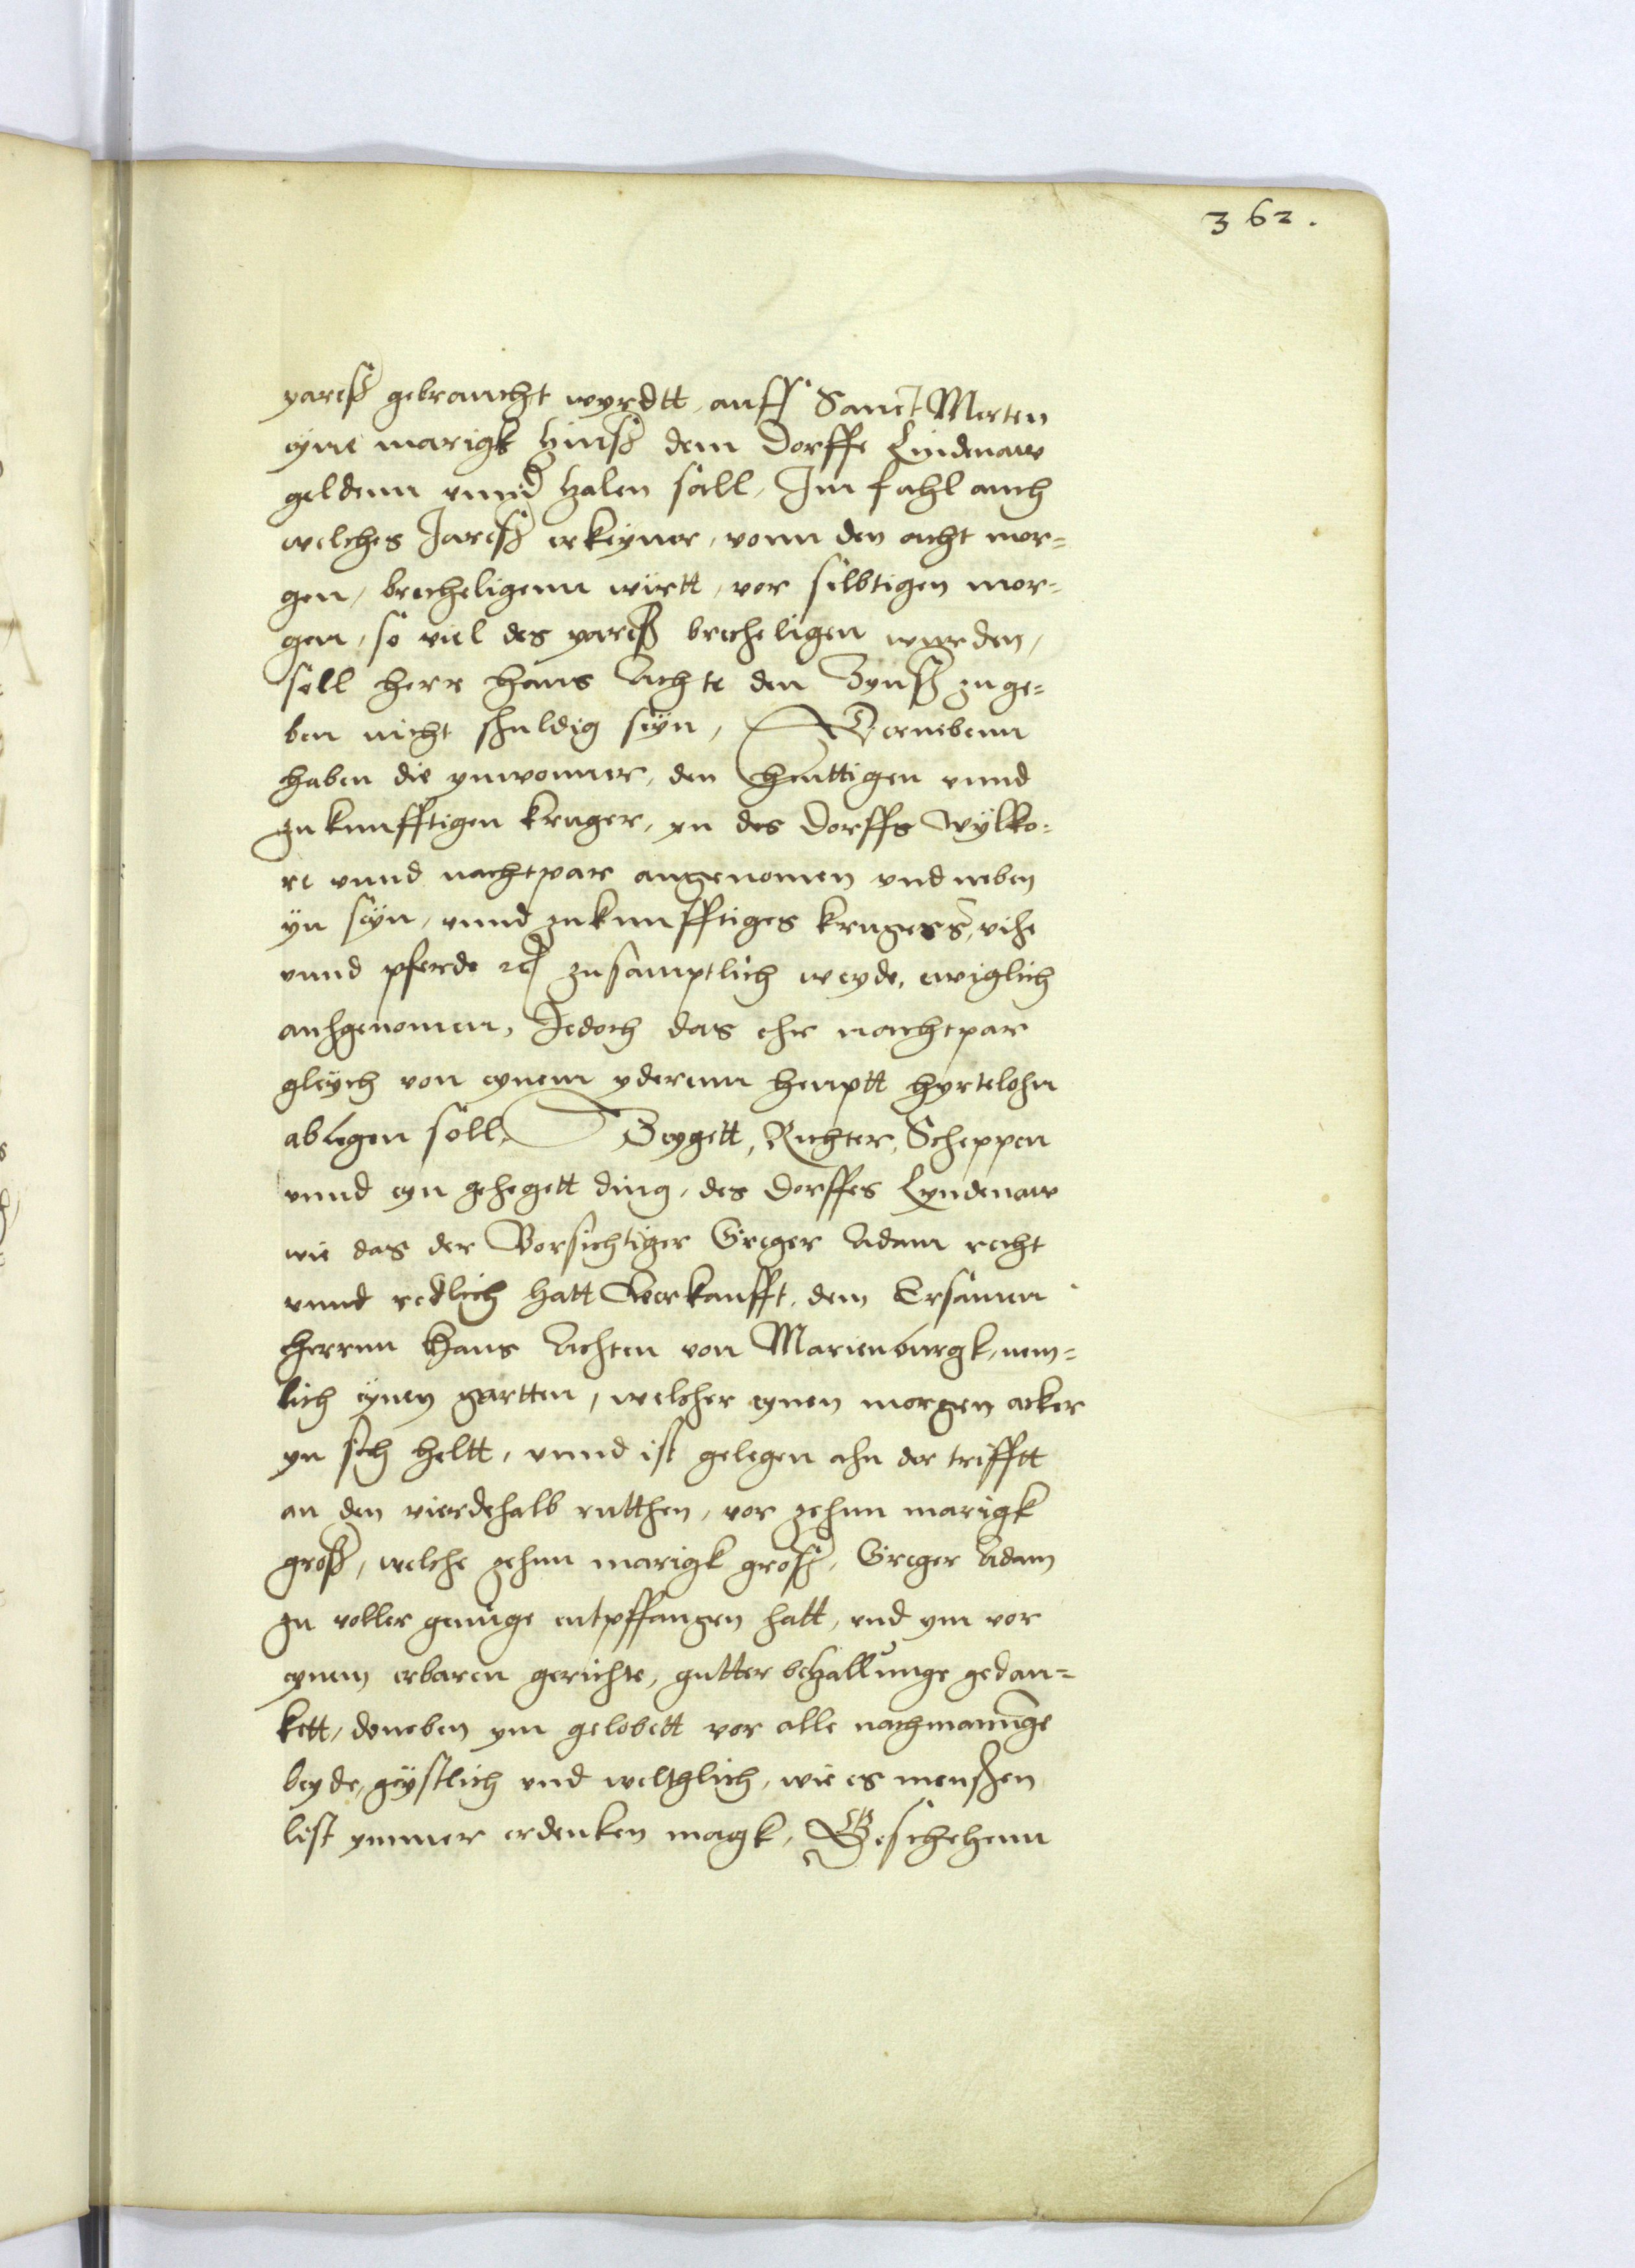 362.
yareß gebraucht wyrdtt, auff Sanct Merten
eyne marigk zinß dem Dorffe Lindenaw
geldenn unnd zalen sall, Im fahl auch
welches Jareß erkeyner, vonn den acht mor=
gen, brecheligenn württ, vor selbtigen mor=
gen, so viel des yareß brecheligen wurden,
soll herr Hans Achte den Zynß zu ge=
ben nicht schuldig seyn, Dernebenn
haben die ynwonner, den heuttigen unnd
zukunfftigen kruger, yn des Dorffs wylko=
re unnd nachtpar angenomen und neben
yn seyn, unnd zukunfftiges krugerß, vihe
unnd pferde zc zusamptlich weyde, ewiglich
anhgenomen, Jedoch das ehr nachtpar
gleych von eynem yderenn heuptt hyrtelohn
ablegen soll. Zeygett, Richter, Scheppen
unnd eyn gehegett ding, des Dorffes Lyndenaw
wie das der Vorsichtiger Greger Adam recht
unnd redlich hatt Verkaufft, dem Ersamen
herrnn Hans Achten von Marienburgk, nem=
lich eynen gartten, welcher eynen morgen acker
yn sich heltt, unnd ist gelegen ahn der trifftt
an den vierdehalb rutthen, vor zehnn marigk
groß, welche zehnn marigk groß, Greger Adam
zu voller genuge entpffangen hatt, und ym vor
eynem erbaren gerichte, gutter bezallunge gedan=
kett, doneben ym gelobett vor alle nachmanunge
beyde, geystlich und welthlich, wie es menschen
list ymmer erdenken magk, Geschehenn